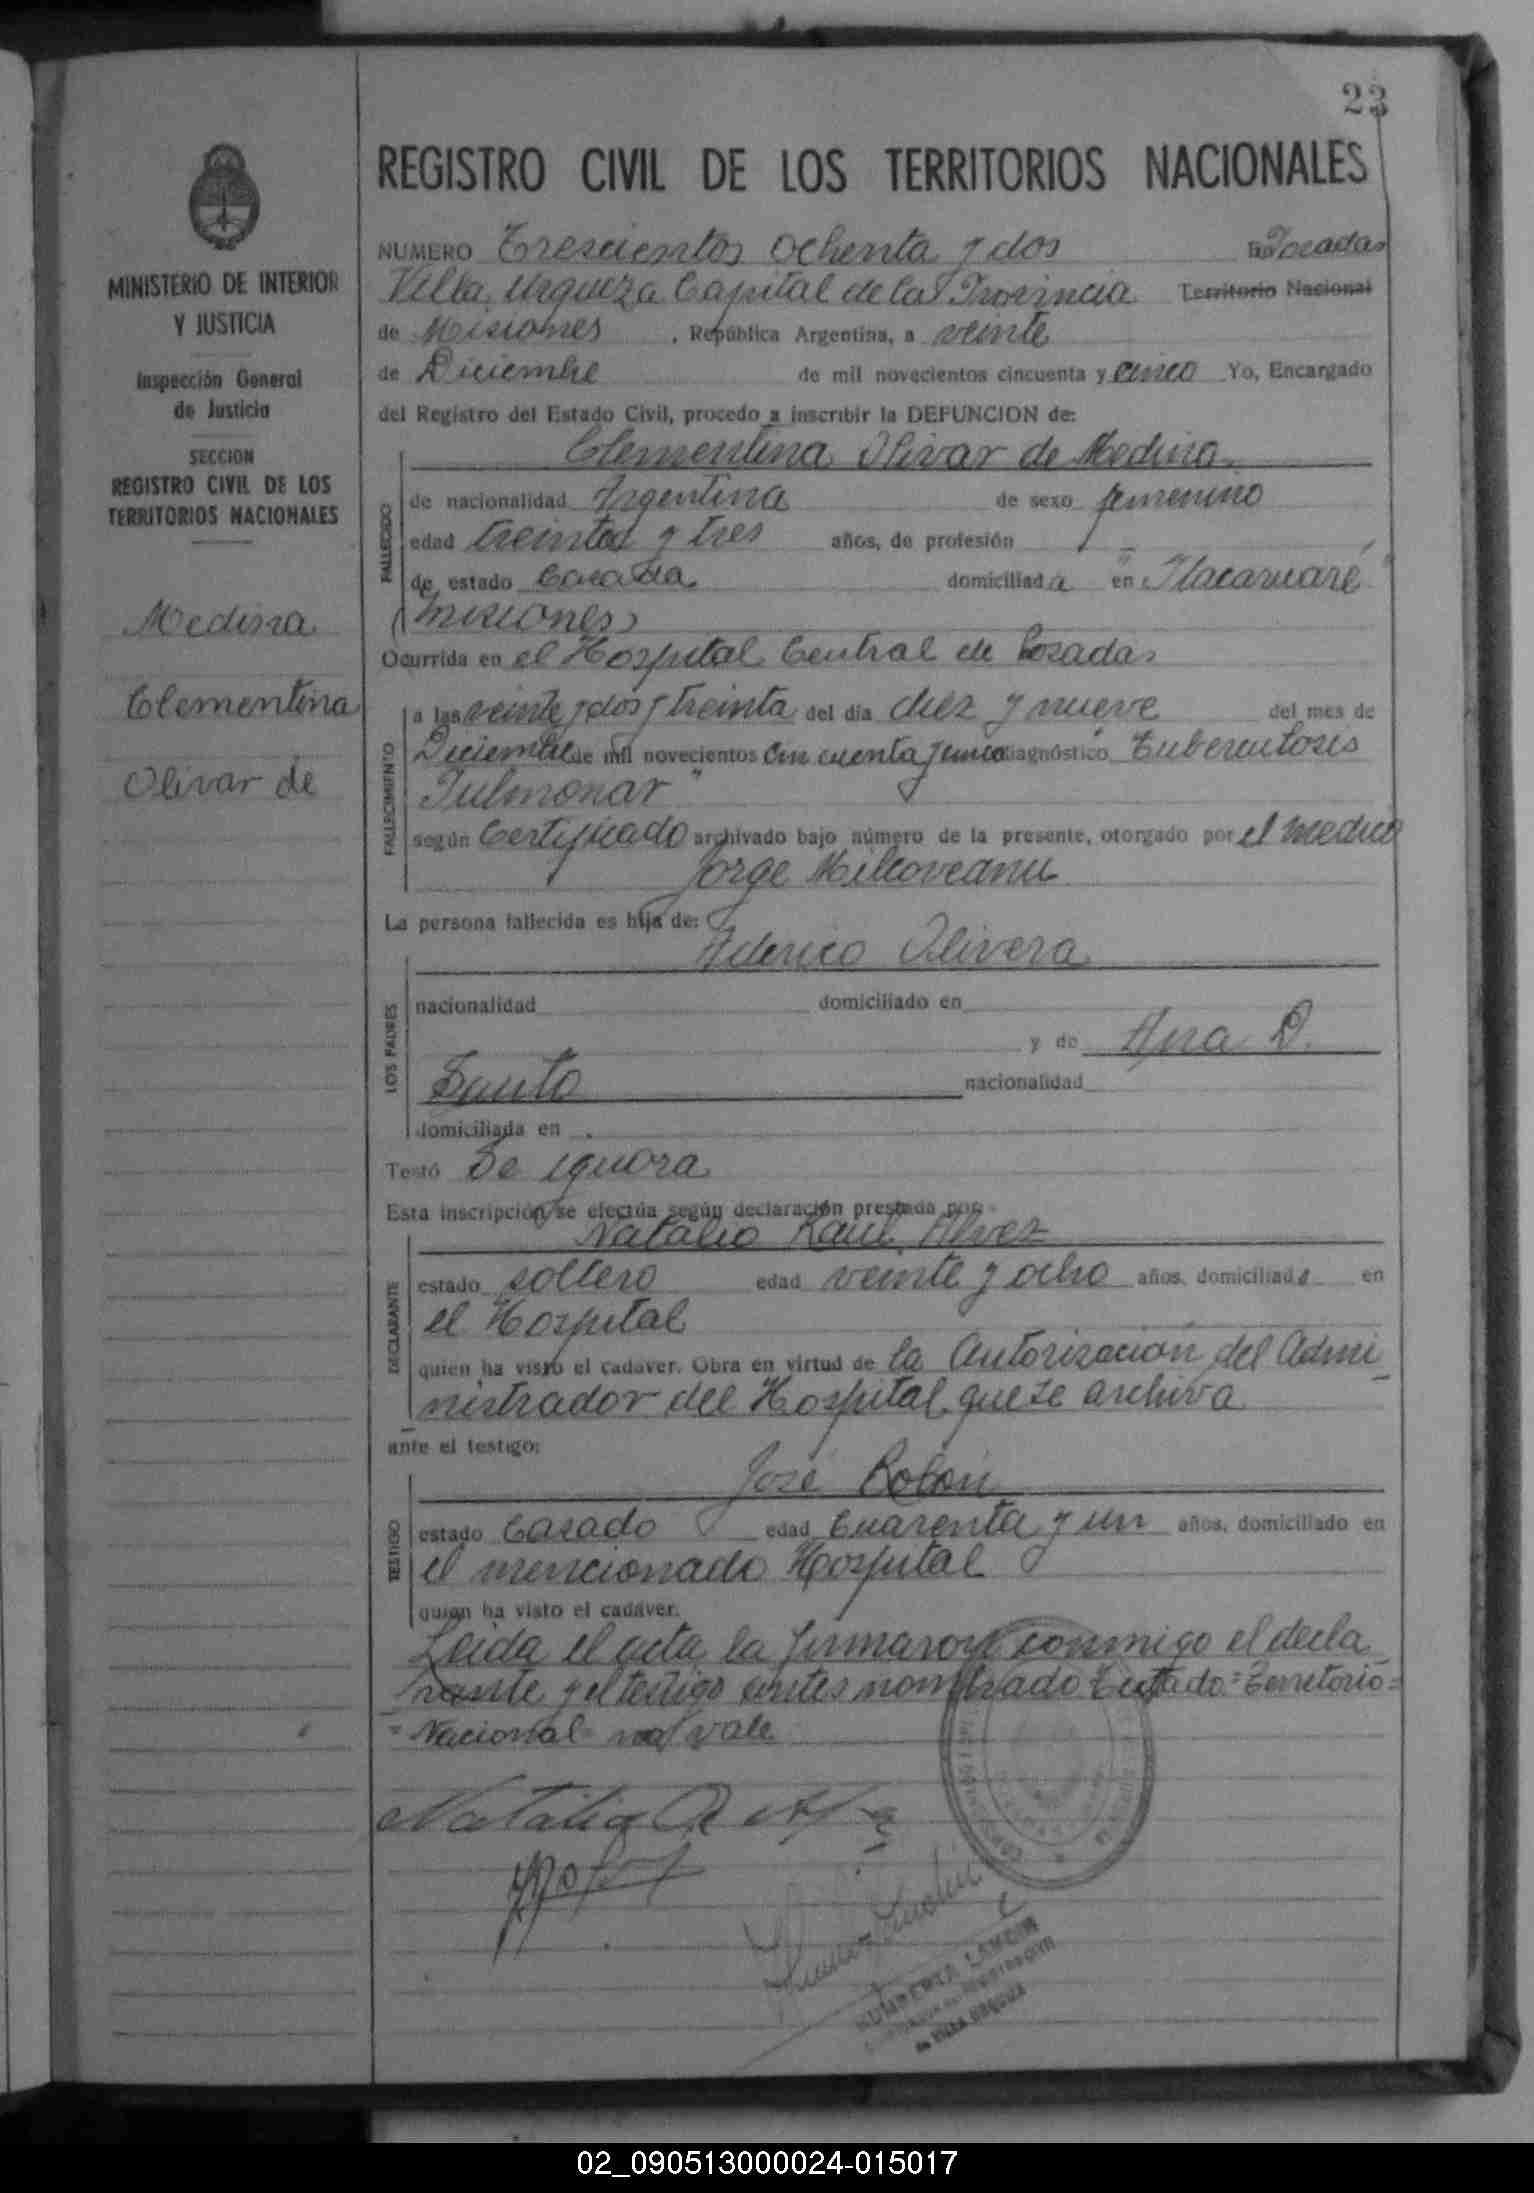 23
REGISTRO CIVIL DE LOS TERRITORIOS NACIONALES
MINISTERIO DE INTERIOR
Y JUSTICIA
Inspección General
de Justicia
SECCION
REGISTRO CIVIL DE LOS
TERRITORIOS NACIONALES
Medina
Clementina
Olivar de
NUMERO Trescientos ochenta y dos En Posadas
Villa Urquiza Capital de la Provincia Territorio Nacional
de Misiones, República Argentina, a veinte
de Diciembre de mil novecientos cincuenta y cinco Yo, Encargado
del Registro del Estado Civil, procedo a inscribir la DEFUNCION de:
Clementina Olivar de Medina
FALLECIDO
de nacionalidad Argentina de sexo femenino
edad treinta y tres años, de profesión -
de estado Casada domiciliada en "Itacaruaré"
(Misiones)
Ocurrida en el Hospital Central de Posadas
FALLECIMIENTO
a las veinte y dos y treinta del día diez y nueve del mes de
Diciembre de mil novecientos cincuenta y cinco diagnóstico "Tuberculosis
Pulmonar"
según Certificado archivado bajo número de la presente, otorgado por el medico
Jorge Milcoveanu
La persona fallecida es hija de:
LOS PADRES
Federico Olivera
nacionalidad domiciliado en
y de Ana D.
Santo nacionalidad
domiciliada en .
Testó Se ignora
Esta inscripción se efectúa según declaración prestada por:
DECLARANTE
Natalio Raul Alvez
estado soltero edad veinte y ocho años, domiciliado en
el Hospital
quien ha visto el cadáver. Obra en virtud de la Autorización del Admi
nistrador del Hospital que se archiva
ante el testigo:
TESTIGO
José Rolón
estado Casado edad Cuarenta y un años, domiciliado en
el mencionado Hospital
quien ha visto el cadáver.
Leida el acta la firmaron conmigo el decla
rante y el testigo antes nombrado Testado="Territorio=
=Nacional= no vale
Natalio R Alvez
HUMBERTO
de VILLA URQUIZA
02_090513000024-015017